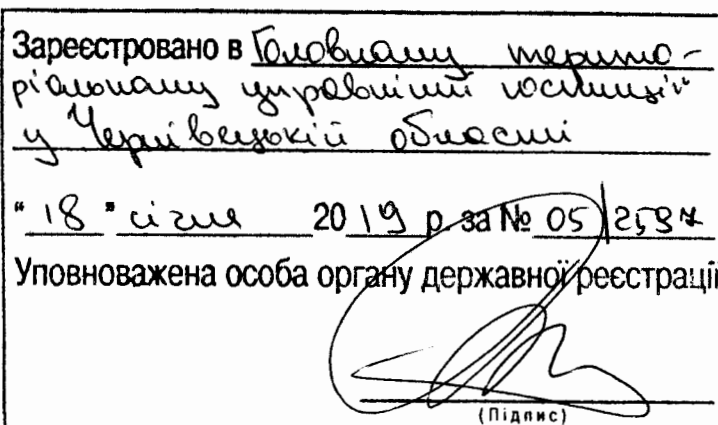 Зареєстровано в Головному терито-
ріальному управлінні юстиції
у Чернівецькій області
"18" січня 2019 р. за № 05/2597
Уповноважена особа органу державної реєстрації
(Підпис)